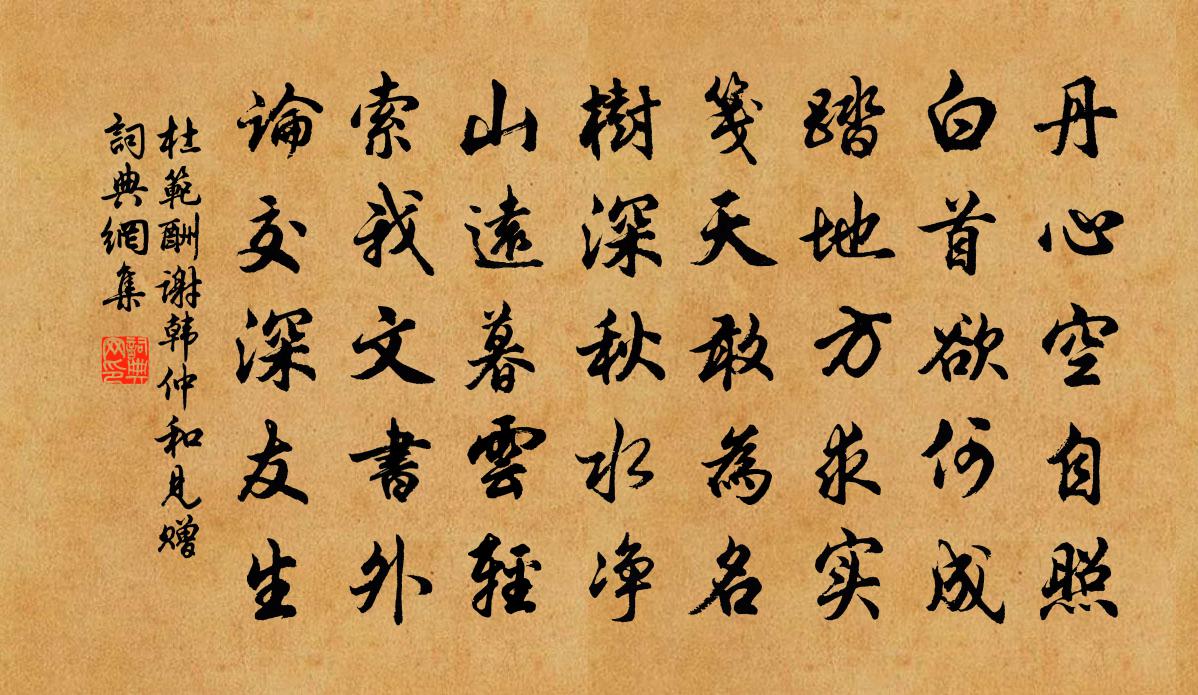 丹心空自照
白首欲何成
踏地方求实
笺天敢為名
樹深秋水净
山遠暮雲輕
索我文書外
論交深友生
杜範酬谢韩仲和見赠
詞典網集
詞典网印